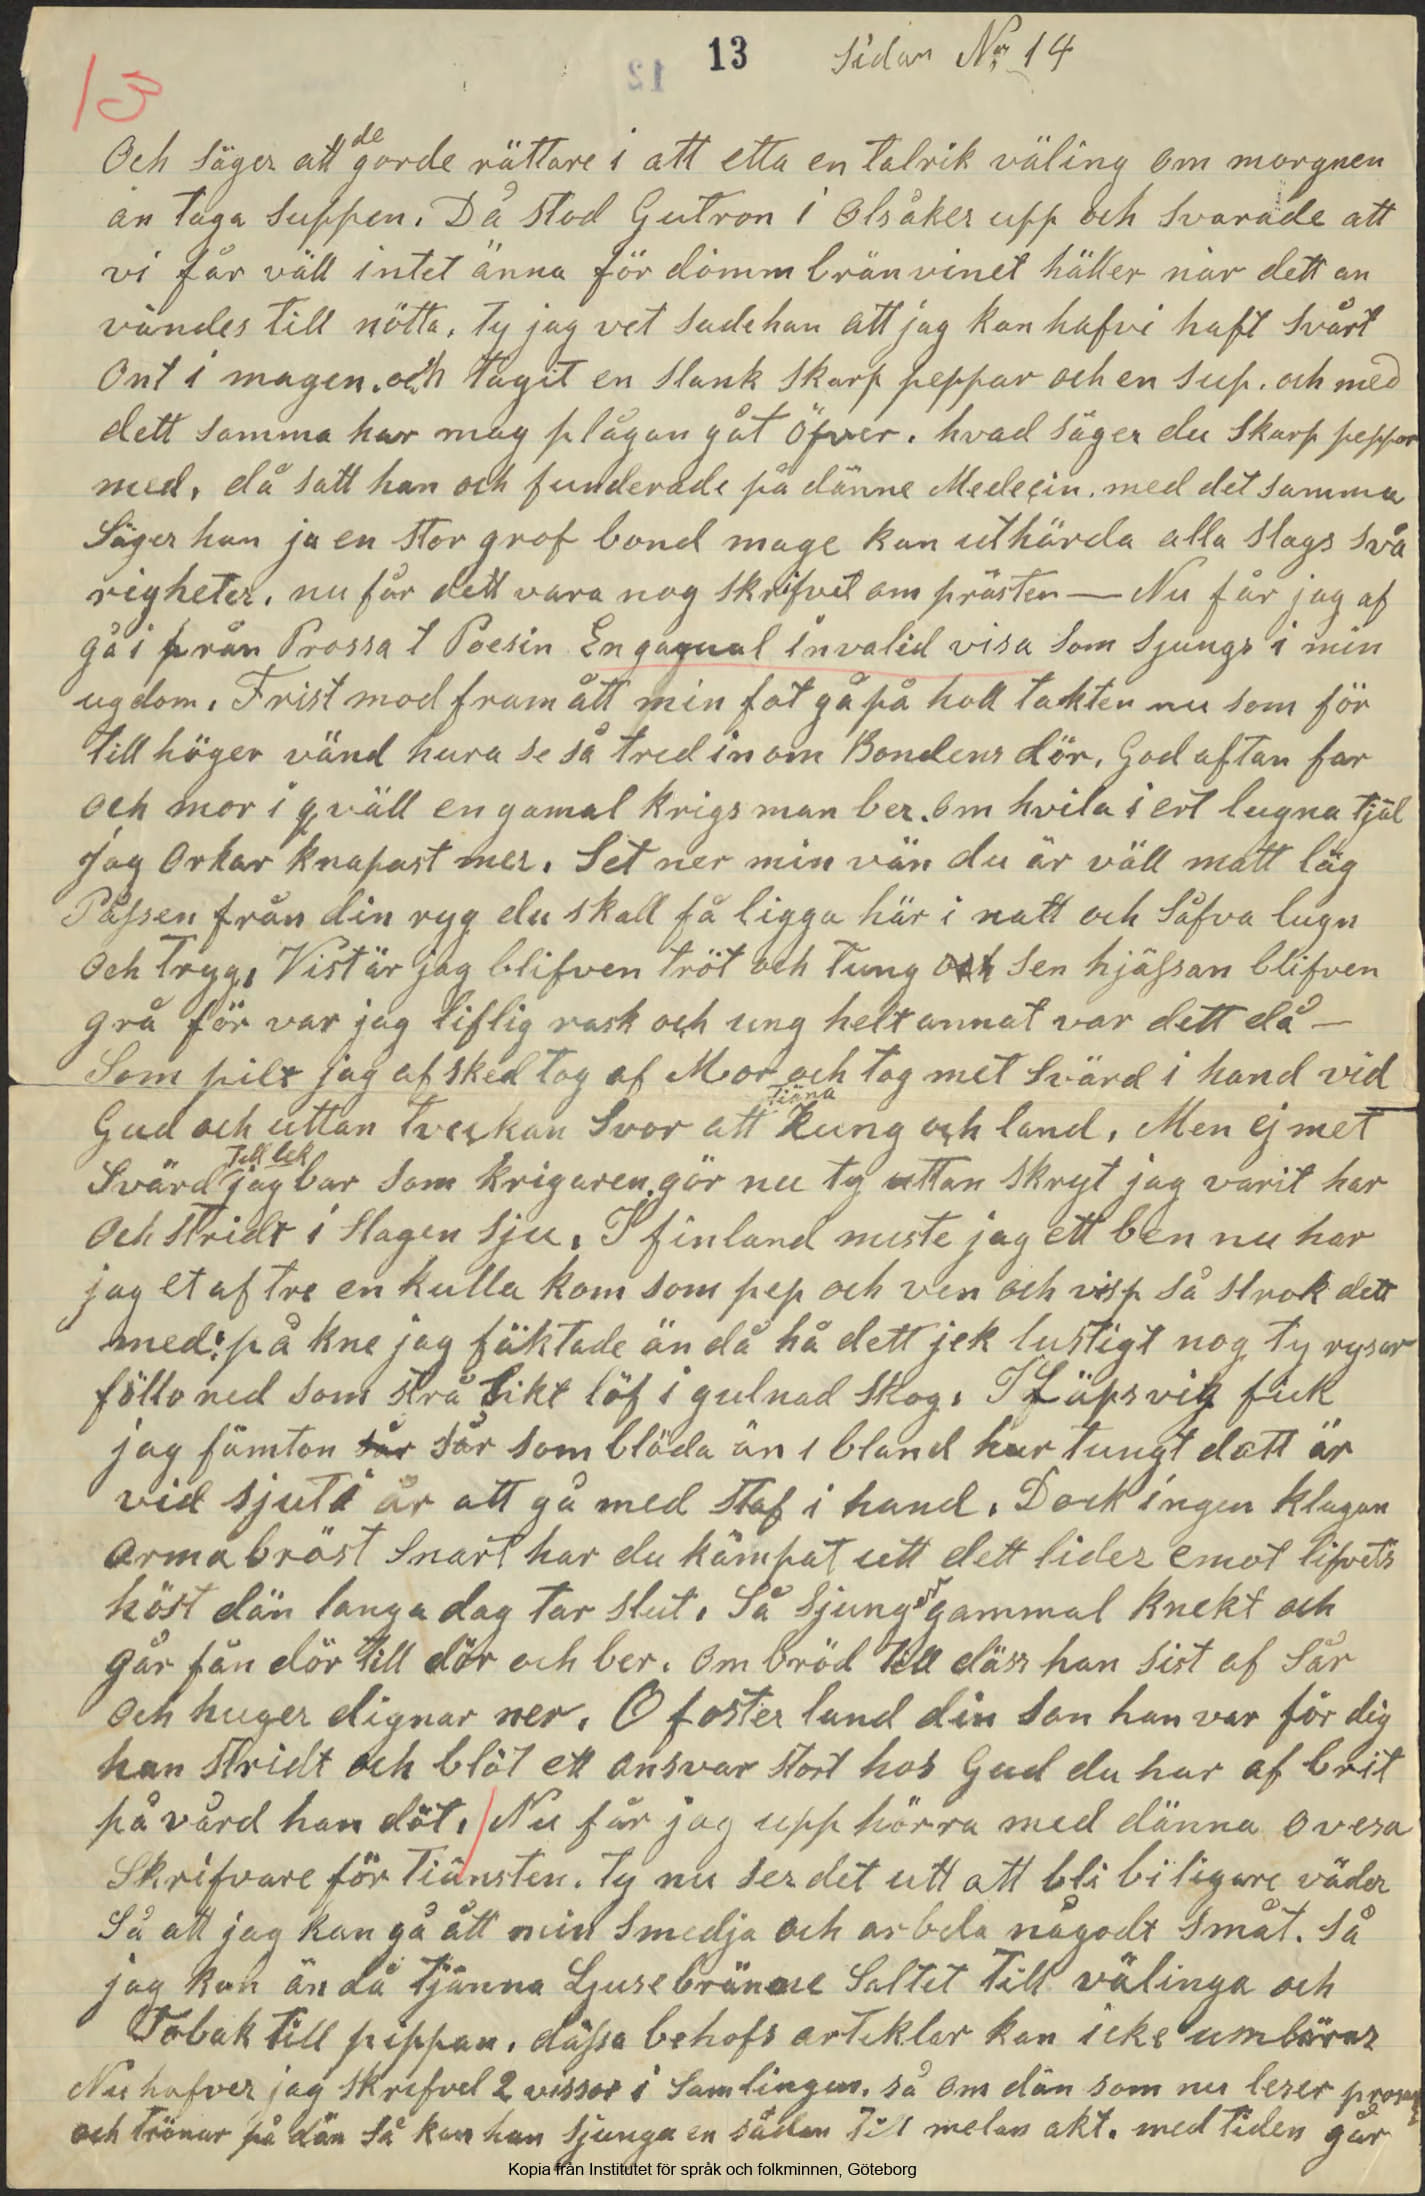 13 Sidan No 14
13
12
Och säger att de gorde rättare i att etta en talrik väling om morgnen
än taga suppen. Då stod Gutron i Olsåker upp och svarade att
vi får väll intet änna för dömm bränvinet häller när dett an
vändes till nötta. ty jag vet sade han att jag kan hafvi haft svårt
Ont i magen. och tagit en slank skarp peppar och en sup. och med
dett samma har mag plågan gåt Öfver. hvad säger du skarp peppar
med, då satt han och funderade på dänne Medecin. med det samma
Säger han ja en stor grof bond mage kan uthärda alla slags svå
righeter. nu får dett vara nog skrifvet om prästen — Nu får jag af
gå i från Prossa t Poesin En gagual invalid visa som sjungs i min
ugdom. Frist mod fram ått min fot gå på holl takten nu som för
till höger vänd hura se så tred inom Bondens dör. God aftan far
och mor i qväll en gamal krigs man ber. om hvila i ert lugna tjäl
jag Orkar knapast mer. Set ner min vän du är väll matt läg
Påssen från din ryg du skall få ligga här i natt och Såfva lugn
och Tryg. Vist är jag blifven tröt och tung och sen hjässan blifven
grå för var jag liflig rask och ung helt annat var dett då —
Som pilt jag afsked tog af Mor och tog met Svärd i hand vid
Gud och uttan tveckan Svor att tiäna kung och land. Men ej met
Svärd Till lek jag bar som krigaren gör nu ty uttan skryt jag varit har
och stridt i slagen sju. I finland meste jag ett ben nu har
jag et af tre en kulla kom som pep och ven och visp så strok dett
med. på kne jag fäktade än då hå dett jek lustigt nog ty rysar
föllo ned som strå likt löf i gulnad skog. I Läpsvig fick
jag fämton sår sår som blöda än i bland hur tungt dätt är
vid sjuti år att gå med staf i hand. Dock ingen klagan
arma bröst snart har du kämpat utt dett lider emot lifvets
höst dän langa dag tar slut. Så Sjunger gammal knekt och
går fån dör till dör och ber. om bröd till däss han sist af Sår
och huger dignar ner. O foster land din son han var för dig
han stridt och blöt ett ansvar stort hos Gud du har af brit
på vård han döt. Nu får jag upp hörra med dänna overa
Skrifvare för tiänsten. ty nu ser det utt att bli biligare väder
Så att jag kan gå ått min smedja och arbeta någodt småt. Så
jag kan än då tjänna Ljusebränne Saltet till välinga och
Tobak till pippan. dässa behofs artiklar kan icke umbäras
Nu hafver jag skrifvel 2 vissor i Samlingen. så om dän som nu leser prosan
och trönar på dän så kan han sjunga en sådan Till melan akt. med tiden går
Kopia från Institutet för språk och folkminnen, Göteborg